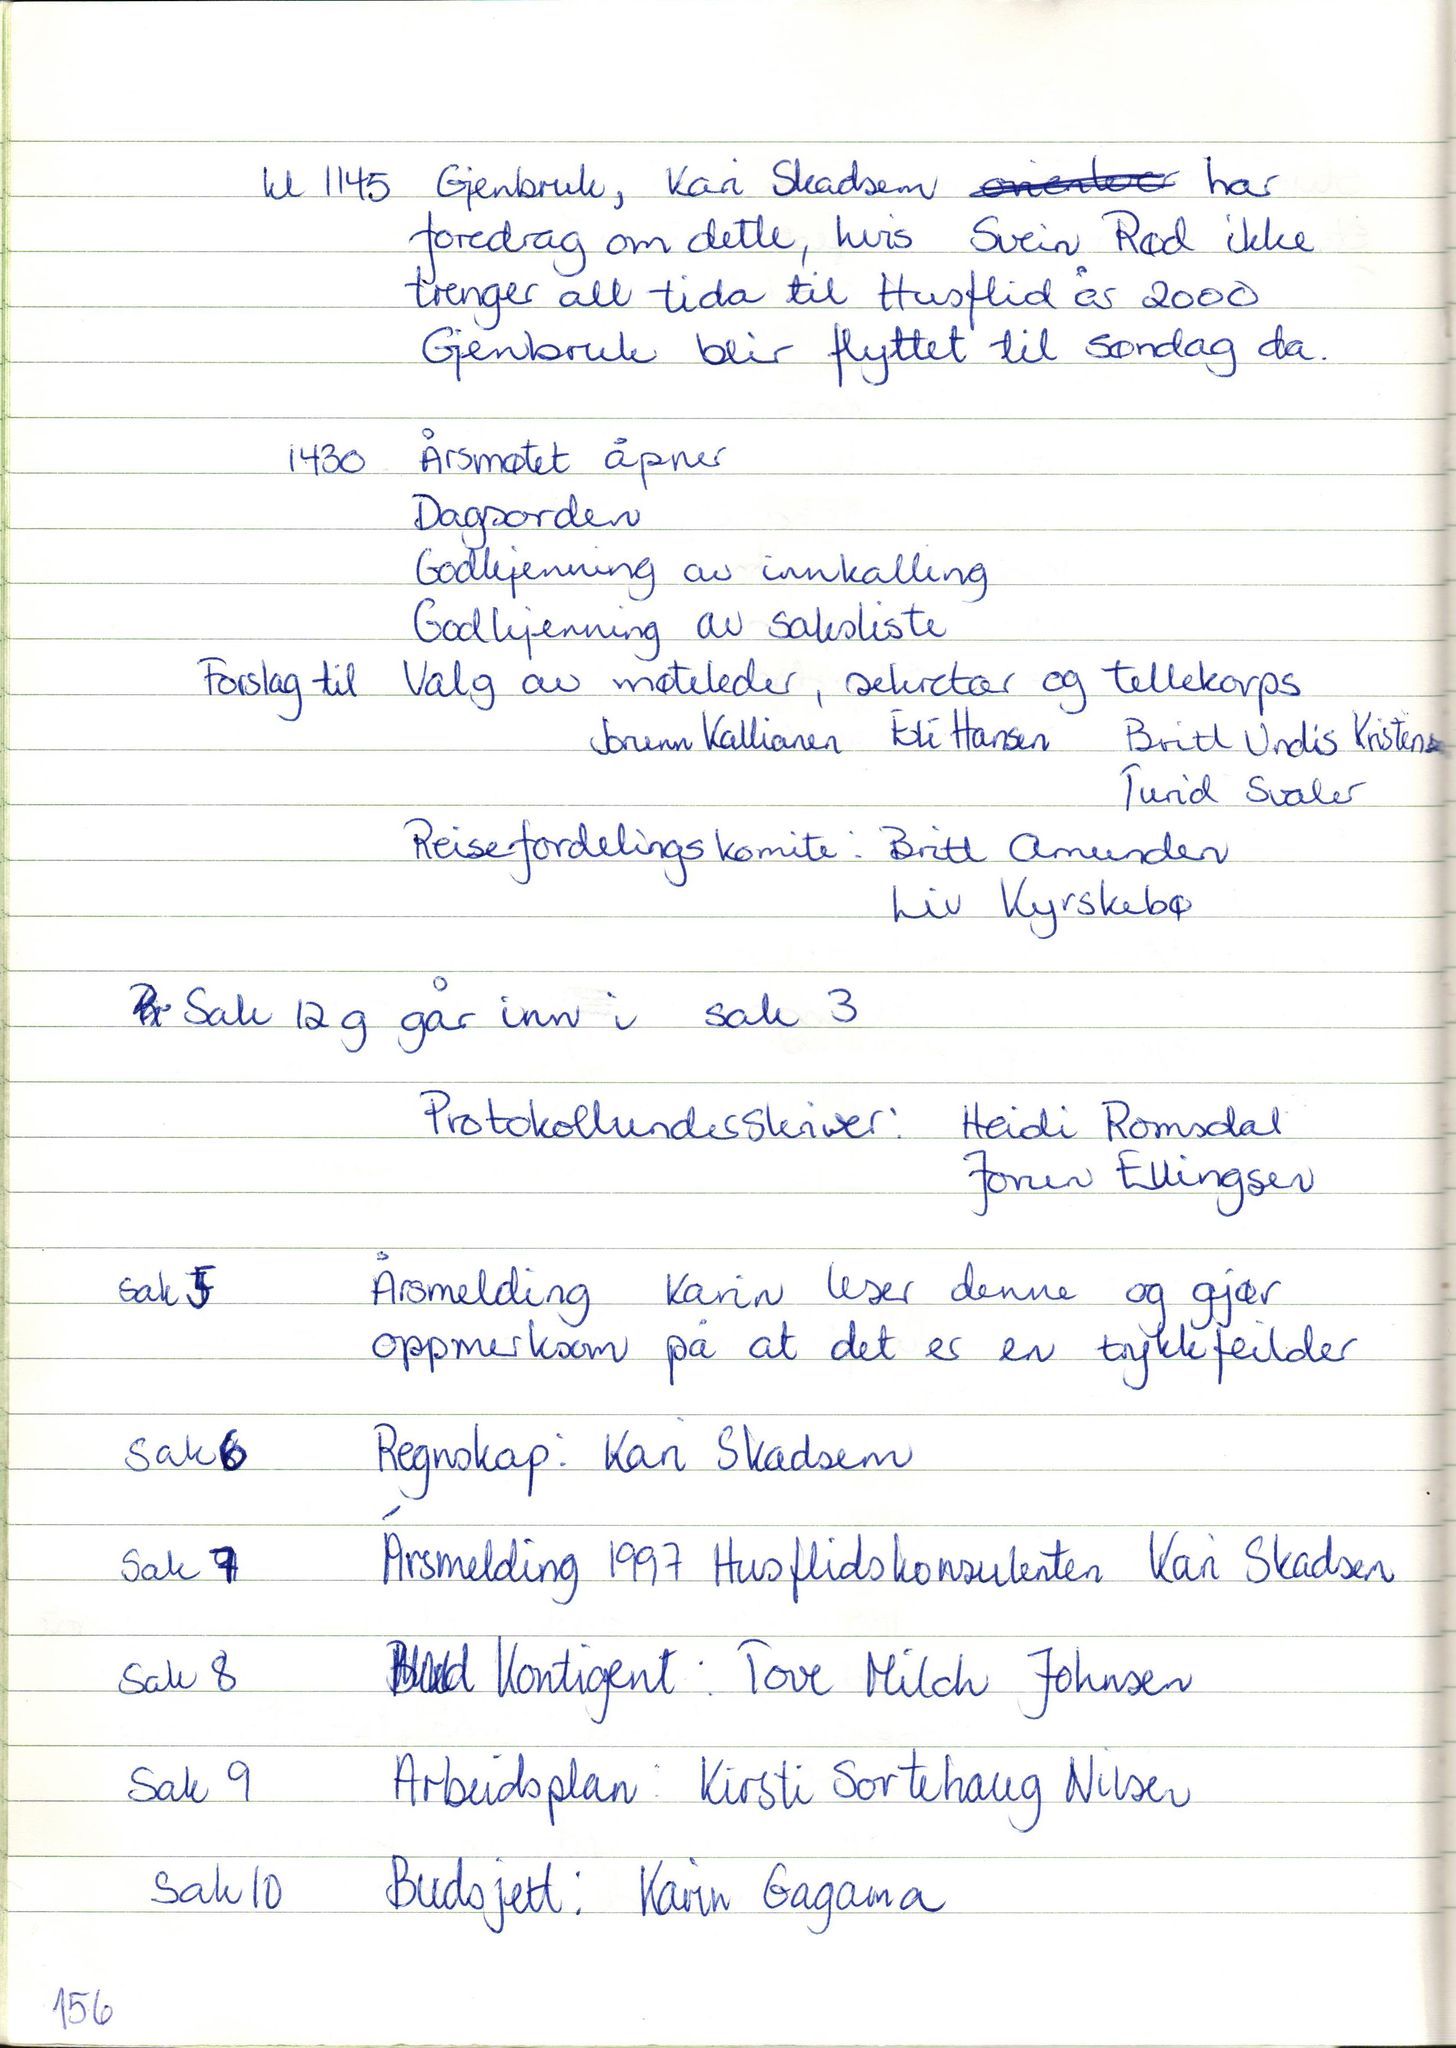 kl 1145 Gjenbruk, Kari Skadsem orienterer har
foredrag om dette, hvis Svein Rød ikke
trenger all tida til Husflid år 2000
Gjenbruk blir flyttet til søndag da.
1430 Årsmøtet åpner
Dagsorden
Godkjenning av innkalling
Godkjenning av saksliste
Forslag til Valg av møteleder, sekretær og tellekorps
Jorunn Kallianen Eli Hansen Britt Undis Kristens
Turid Svaler
Reisefordelingskomite: Britt Amundsen
Liv Kyrskebø
Sak 12 g går inn i sak 3
Protokollunderskriver: Heidi Romsdal
Jorun Ellingsen
Sak 5 Årsmelding Karin leser denne og gjør
oppmerksom på at det er en trykkfeil der
Sak 6 Regnskap: Kari Skadsem
Sak 7 Årsmelding 1997 Husflidskonsulenten Kari Skadsem
Sak 8 Kontigent: Tove Milch Johnsen
Sak 9 Arbeidsplan: Kirsti Sortehaug Nilsen
Sak 10 Budsjett: Karin Gagama
156